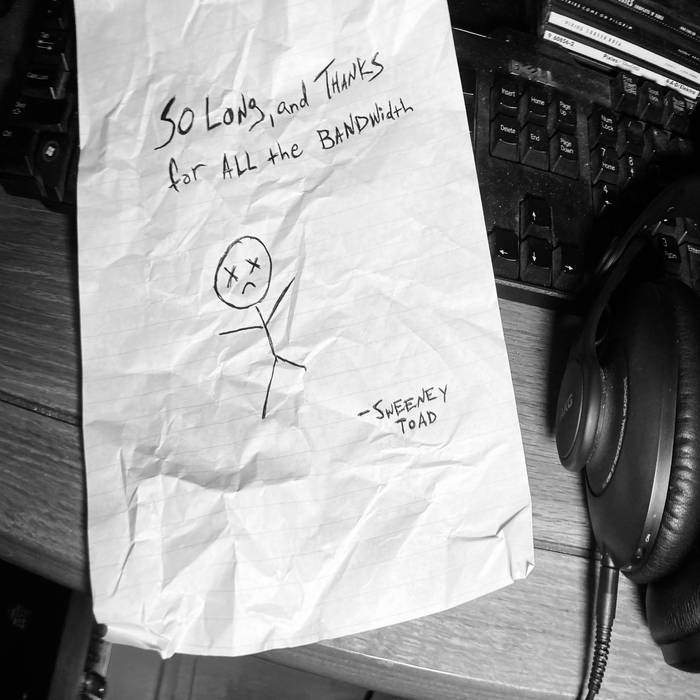 SO LONG, and THANKS
for ALL the BANDWidth
-SWEENEY
TOAD
Insert
Home
Page
Up
Delete
End
Page
Down
Num
Lock
7
Home
8
4
AKG